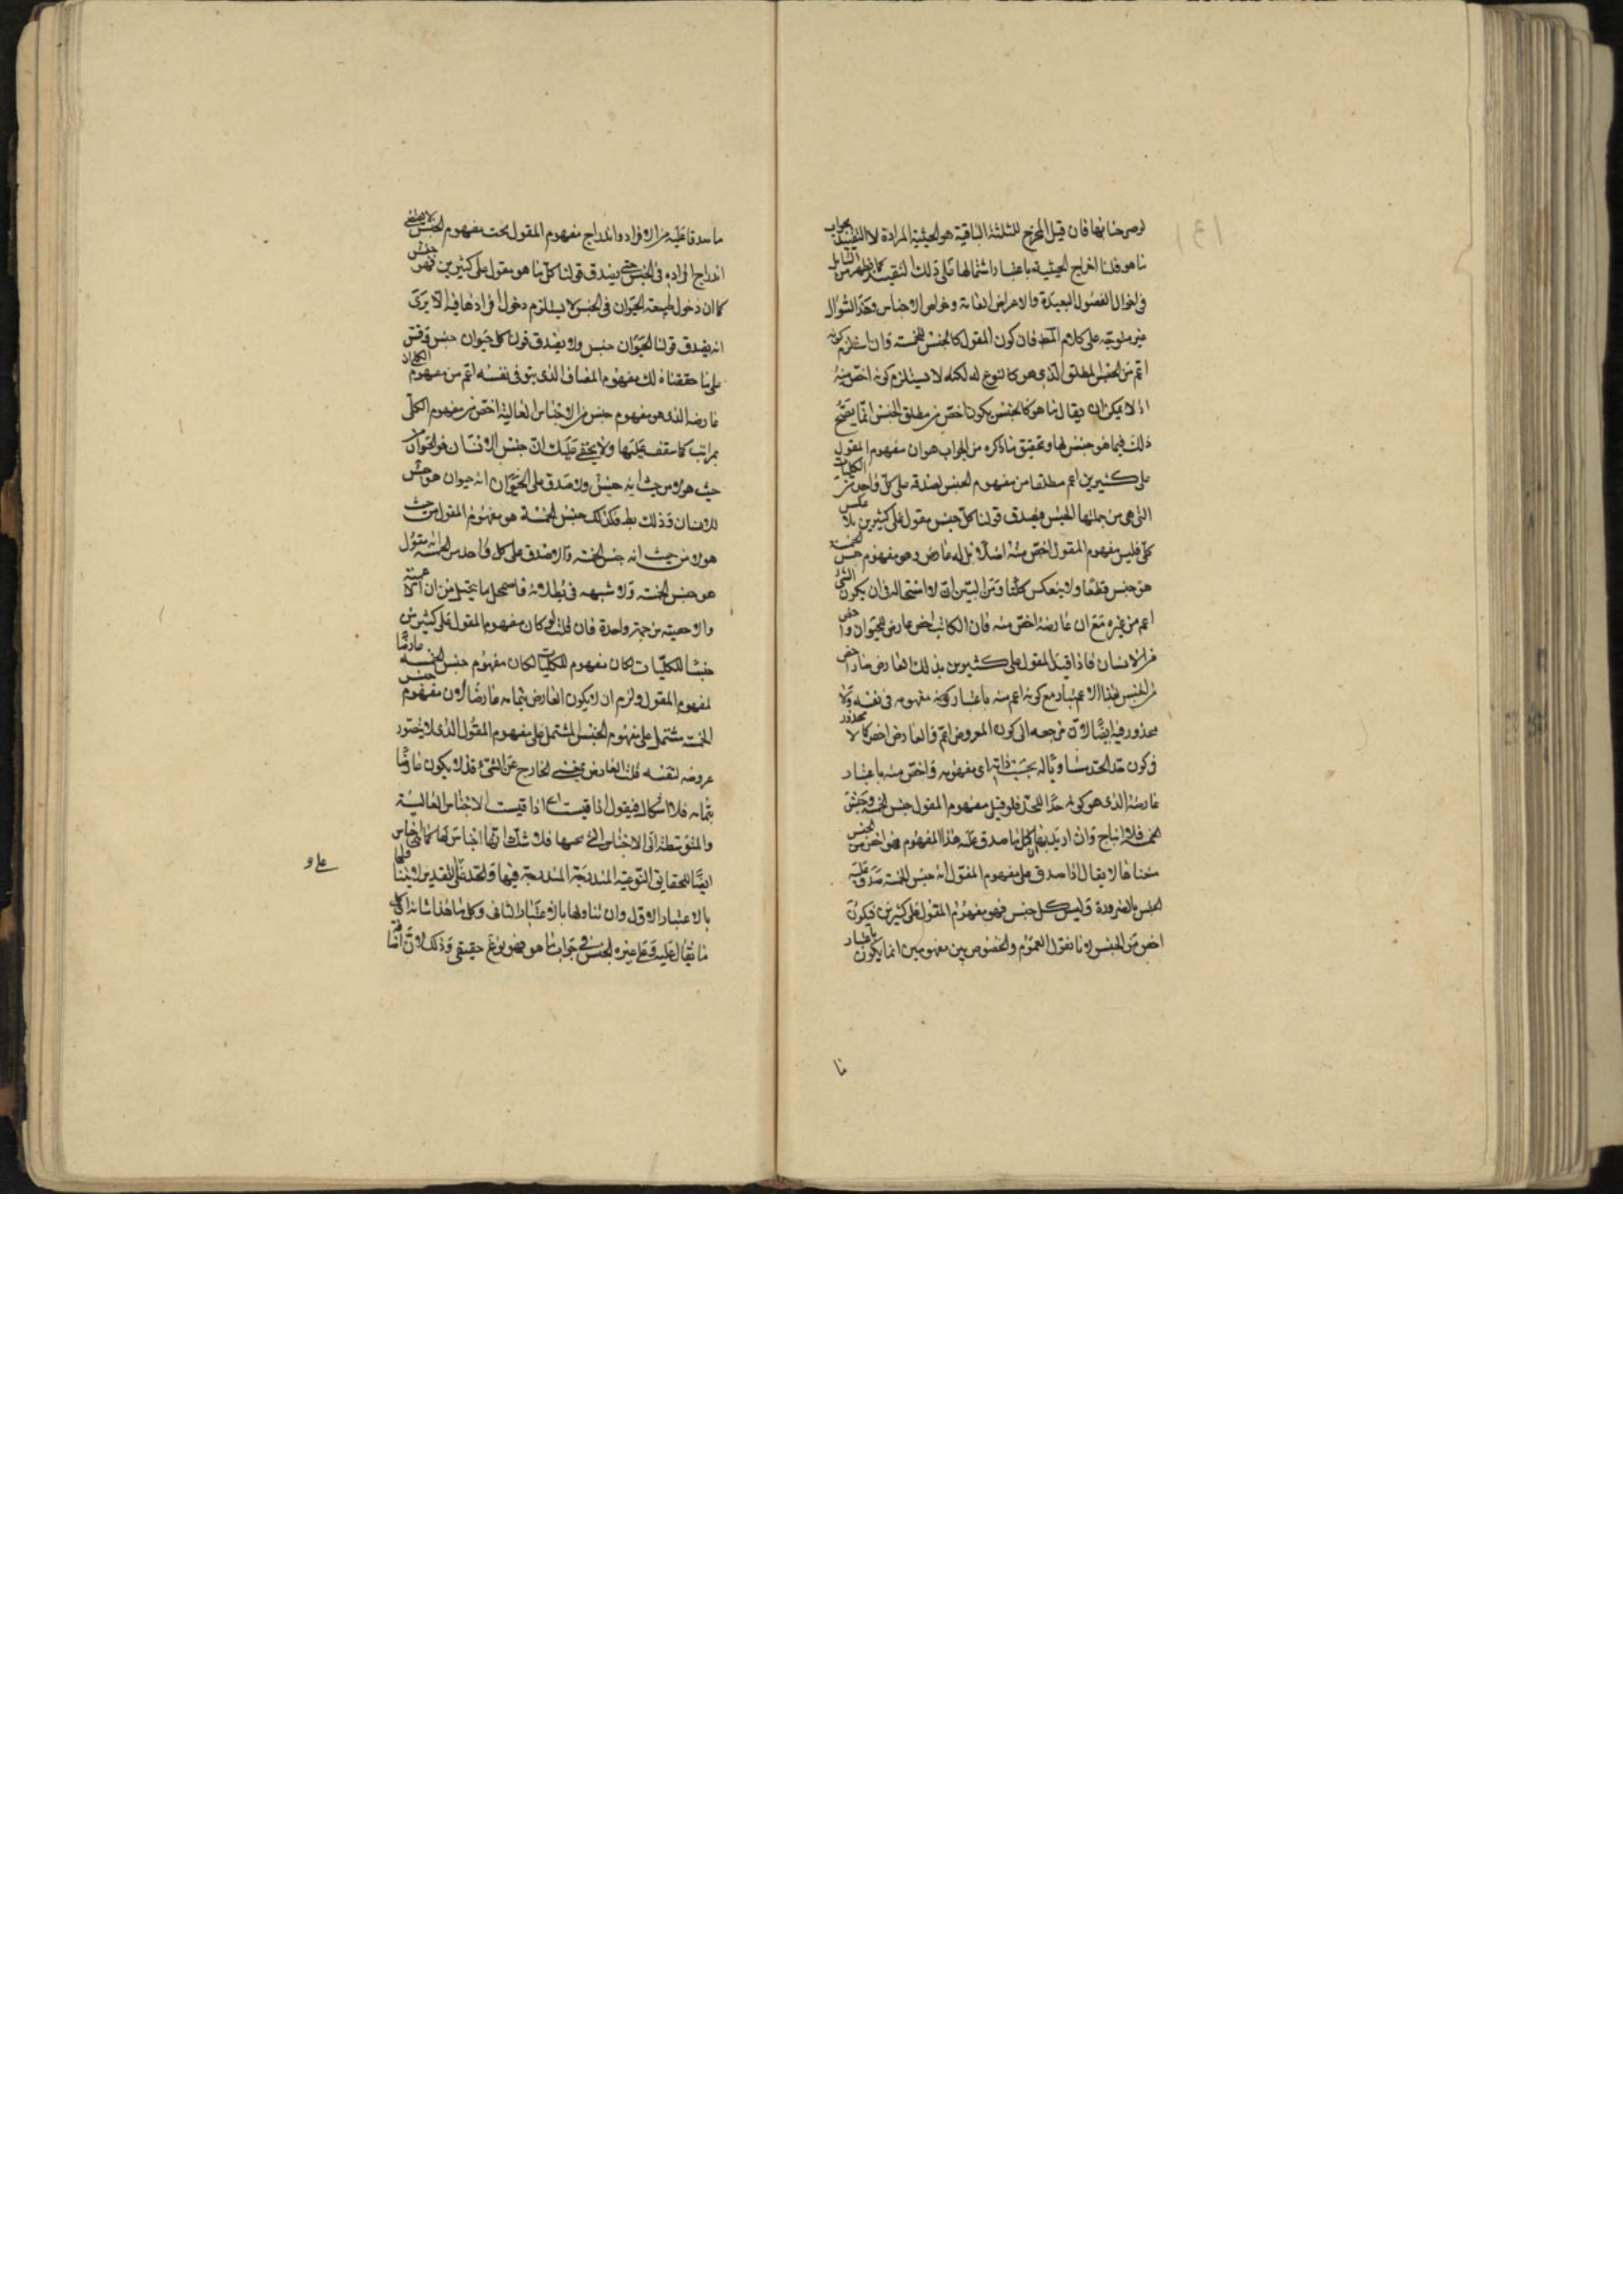 فان قيل المخرج للثلثة الباقية هو الحيثية المرادة لا التقييد بجواب
ما هو قلنا اخراج الحيثية باعتبار اشتمالها على ذلك التقييد كما يظهر من التأمل
فى اخوال الفصول البعيدة والاعراض العامة وخواص الاجناس وهذا السؤال
غير متوجه على كلام المص فان كون المقول كالجنس للخمسة وان استلزم كونه
اعم من الجنس المطلق الذى هو كالنوع له لكنه لا يستلزم كونه اخص منه
اذ لا يمكن ان يقال ما هو كالجنس يكون اخص من مطلق الجنس انما يصح
ذلك فيما هو جنس لها وتحقيق ما ذكره من الجواب هو ان مفهوم المقول
على كثيرين اعم مطلقا من مفهوم الجنس لصدقه على كل واحد من الكليات
التى هى من جملتها الجنس فيصدق قولنا كل جنس مقول على كثيرين بلا عكس
كلى فليس مفهوم المقول اخص منه اصلا بل له عارض وهو مفهوم جنس الخمسة
هو جنس قطعا ولا ينعكس كليا ومن البين ان لا استحالة فى ان يكون الشئ
اعم من غيره مع ان عارضه اخص منه فان الكاتب اخص عارض للحيوان و
من الانسان فاذا قيد المقول على كثيرين بذلك العارض صار اخص
من الجنس بهذا الاعتبار مع كونه اعم منه باعتبار مفهومه فى نفسه ولا
محذور فيه ايضا لان مرجعه الى كون المعروض اعم والعارض اخص كما لا محذور
فى كون حد الحد مساويا له بحسب ذاته اى مفهومه واخص منه باعتبار
عارضه الذى هو كونه حدا للحد فلو قيل مفهوم المقول جنس الخمسة وجنس
الخمسة فلا انتاج وان اريد بها كل ما صدق عليه هذا المفهوم فهو اخص من الجنس
لا يقال اذا صدق على مفهوم المقول انه جنس للخمسة صدق عليه
الجنس بالضرورة وليس كل جنس فهو مفهوم المقول على كثيرين فيكون
اخص من الجنس لانا نقول العموم والخصوص بين مفهومين انما يكون باعتبار
ما
ما صدقا عليه من الافراد واندراج مفهوم المقول تحت مفهوم الجنس لا يقتضى
اندراج افراده فى الجنس حتى يصدق قولنا كل ما هو مقول على كثيرين فهو جنس
كما ان دخول طبيعة الحيوان فى الجنس لا يستلزم دخول افرادها فيه الا يرى
انه يصدق قولنا الحيوان جنس ولا يصدق قولنا كل حيوان جنس وقس
على ما حققناه لك مفهوم المضاف الذى هو فى نفسه اعم من مفهوم الكلى
عارضه الذى هو مفهوم جنس من الاجناس العالية اخص من مفهوم الكلى
بمراتب كما ستقف عليها ولا يخفى عليك ان جنس الانسان هو الحيوان من
حيث هو لا من حيث انه جنس ولا صدق على الحيوان انه حيوان هو جنس
للانسان وذلك بط فكذلك جنس الخمسة هو مفهوم المقول من حيث
هو لا من حيث انه جنس الخمسة والا لصدق على كل واحد من الخمسة انه مقول
هو جنس الخمسة ولا شبهة فى بطلانه فاضمحل ما يتخيل من ان
والاخصية من جهة واحدة فان قلت لو كان مفهوم المقول على كثيرين
جنسا للكليات لكان مفهوم جنس الخمسة عارضا
لمفهوم المقول ولزم ان لا يكون العارض بتمامه عارضا لان مفهوم جنس
الخمسة مشتمل على مفهوم الجنس المشتمل على مفهوم المقول الذى لا يتصور
عروضه لنفسه قلنا العارض بمعنى الخارج عن الشئ قد لا يكون عارضا
بتمامه فلا اشكال فيقول اذا قيست اه اذا قيست الاجناس العالية
والمتوسطة الى الاجناس التى تحتها فلا شك انها اجناس لها كما انها اجناس
ايضا للحقايق النوعية المندرجة المندرجة فيها والحد على التقدير لا يتناولها
بالاعتبار الاول وان تناولها بالاعتبار الثانى وكل ما هذا شانه
ما يقال عليه وعلى غيره الجنس فى جواب ما هو فهو نوع حقيقى وذلك لان